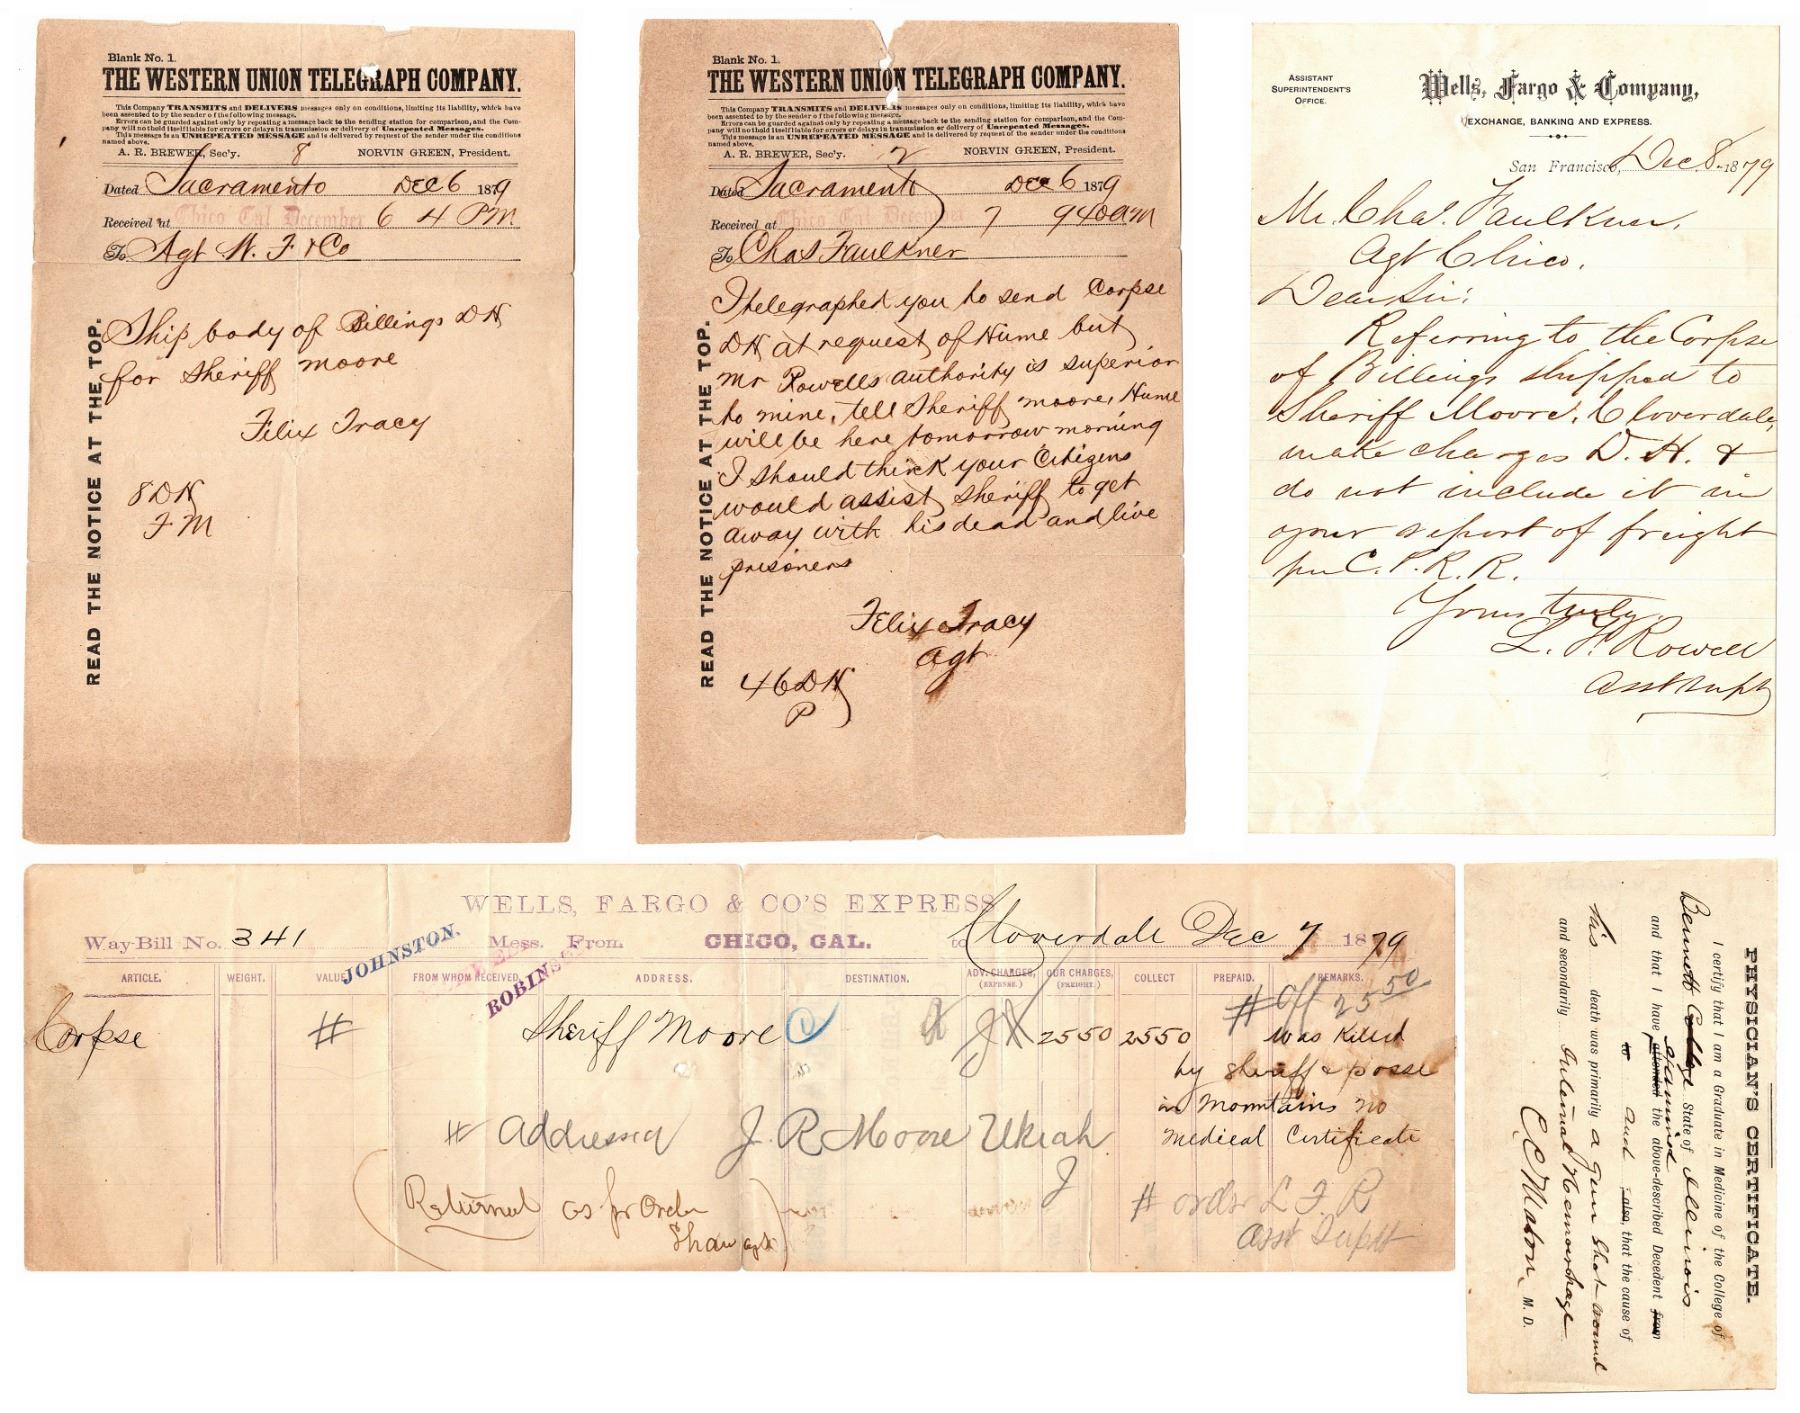 Blank No. 1.
THE WESTERN UNION TELEGRAPH COMPANY.
This Company TRANSMITS and DELIVERS messages only on conditions, limiting its liability, which have
been assented to by the sender of the following message.
Errors can be guarded against only by repeating a message back to the sending station for comparison, and the Com-
pany will not hold itself liable for errors or delays in transmission or delivery of Unrepeated Messages.
This message is an UNREPEATED MESSAGE and is delivered by request of the sender under the conditions
named above.
A. R. BREWER, Sec'y. 8 NORVIN GREEN, President.
Dated Sacramento DEC 6 1879
Received at Chico Cal December 6 4 PM
To Agt W. F & Co
READ THE NOTICE AT THE TOP.
Ship body of Billings DH
for Sheriff Moore
Felix Tracy
8 DH
F M
Blank No. 1.
THE WESTERN UNION TELEGRAPH COMPANY.
This Company TRANSMITS and DELIVERS messages only on conditions, limiting its liability, which have
been assented to by the sender of the following message.
Errors can be guarded against only by repeating a message back to the sending station for comparison, and the Com-
pany will not hold itself liable for errors or delays in transmission or delivery of Unrepeated Messages.
This message is an UNREPEATED MESSAGE and is delivered by request of the sender under the conditions
named above.
A. R. BREWER, Sec'y. 2 NORVIN GREEN, President.
Dated Sacramento DEC 6 1879
Received at Chico Cal December 7 940am
To Chas Faulkner
READ THE NOTICE AT THE TOP.
I telegraphed you to send Corpse
DH at request of Hume but
Mr Rowells authority is superior
to mine, tell Sheriff Moore, Hume
will be here tomorrow morning
I should think your Citizens
would assist Sheriff to get
away with his dead and live
prisoners
Felix Tracy
Agt
46 DH
P
ASSISTANT
SUPERINTENDENT'S
OFFICE.
Wells, Fargo & Company,
EXCHANGE, BANKING AND EXPRESS.
San Francisco, Dec 8 1879
Mr. Chas. Faulkner,
Agt Chico.
Dear Sir:
Referring to the Corpse
of Billings shipped to
Sheriff Moore, Cloverdale,
make charges D. H. &
do not include it in
your report of freight
per C. P. R. R.
Yours truly,
L. F. Rowell
Asst Supt
WELLS, FARGO & CO'S EXPRESS
Way-Bill No. 341 JOHNSTON. Mess. From CHICO, CAL. to Cloverdale Dec 7 1879
ROBINS
ARTICLE. WEIGHT. VALUE FROM WHOM RECEIVED ADDRESS. DESTINATION. ADV. CHARGES, (EXPENSE.) OUR CHARGES, (FREIGHT.) COLLECT PREPAID. REMARKS.
# Off 25 50
Corpse # Sheriff Moore 25 50 25 50 was Killed
by sheriff & posse
in Mountains no
Medical Certificate
# Addressed J R Moore Ukiah
(Returned as pr Order
Shaw agt)
# order L F R
Asst Supt
PHYSICIAN'S CERTIFICATE.
I certify that I am a Graduate in Medicine of the College of
Bennett College State of Illinois
and that I have attended examined the above-described Decedent from
to and I also, that the cause of
his death was primarily a Gun Shot wound
and secondarily Internal Hemorrhage
C C Mason, M. D.